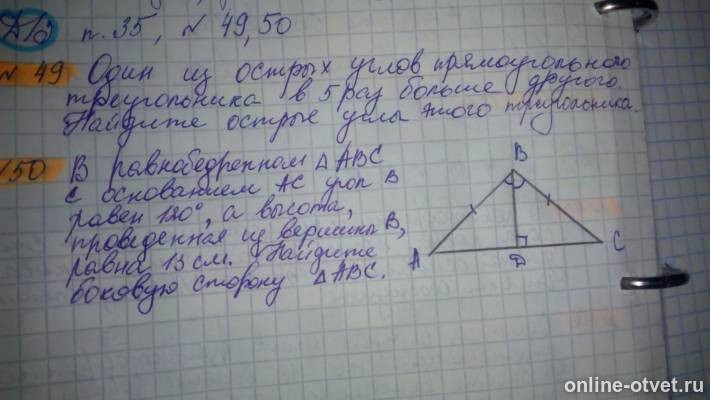 Д/з п. 35, № 49, 50
№ 49 Один из острых углов прямоугольного
треугольника в 5 раз больше другого.
Найдите острые углы этого треугольника.
№50 В равнобедренном △ABC
с основанием AC угол B
равен 120°, а высота,
проведенная из вершины B,
равна 13 см. Найдите
боковую сторону △ABC.
B
A
D
C
online-otvet.ru